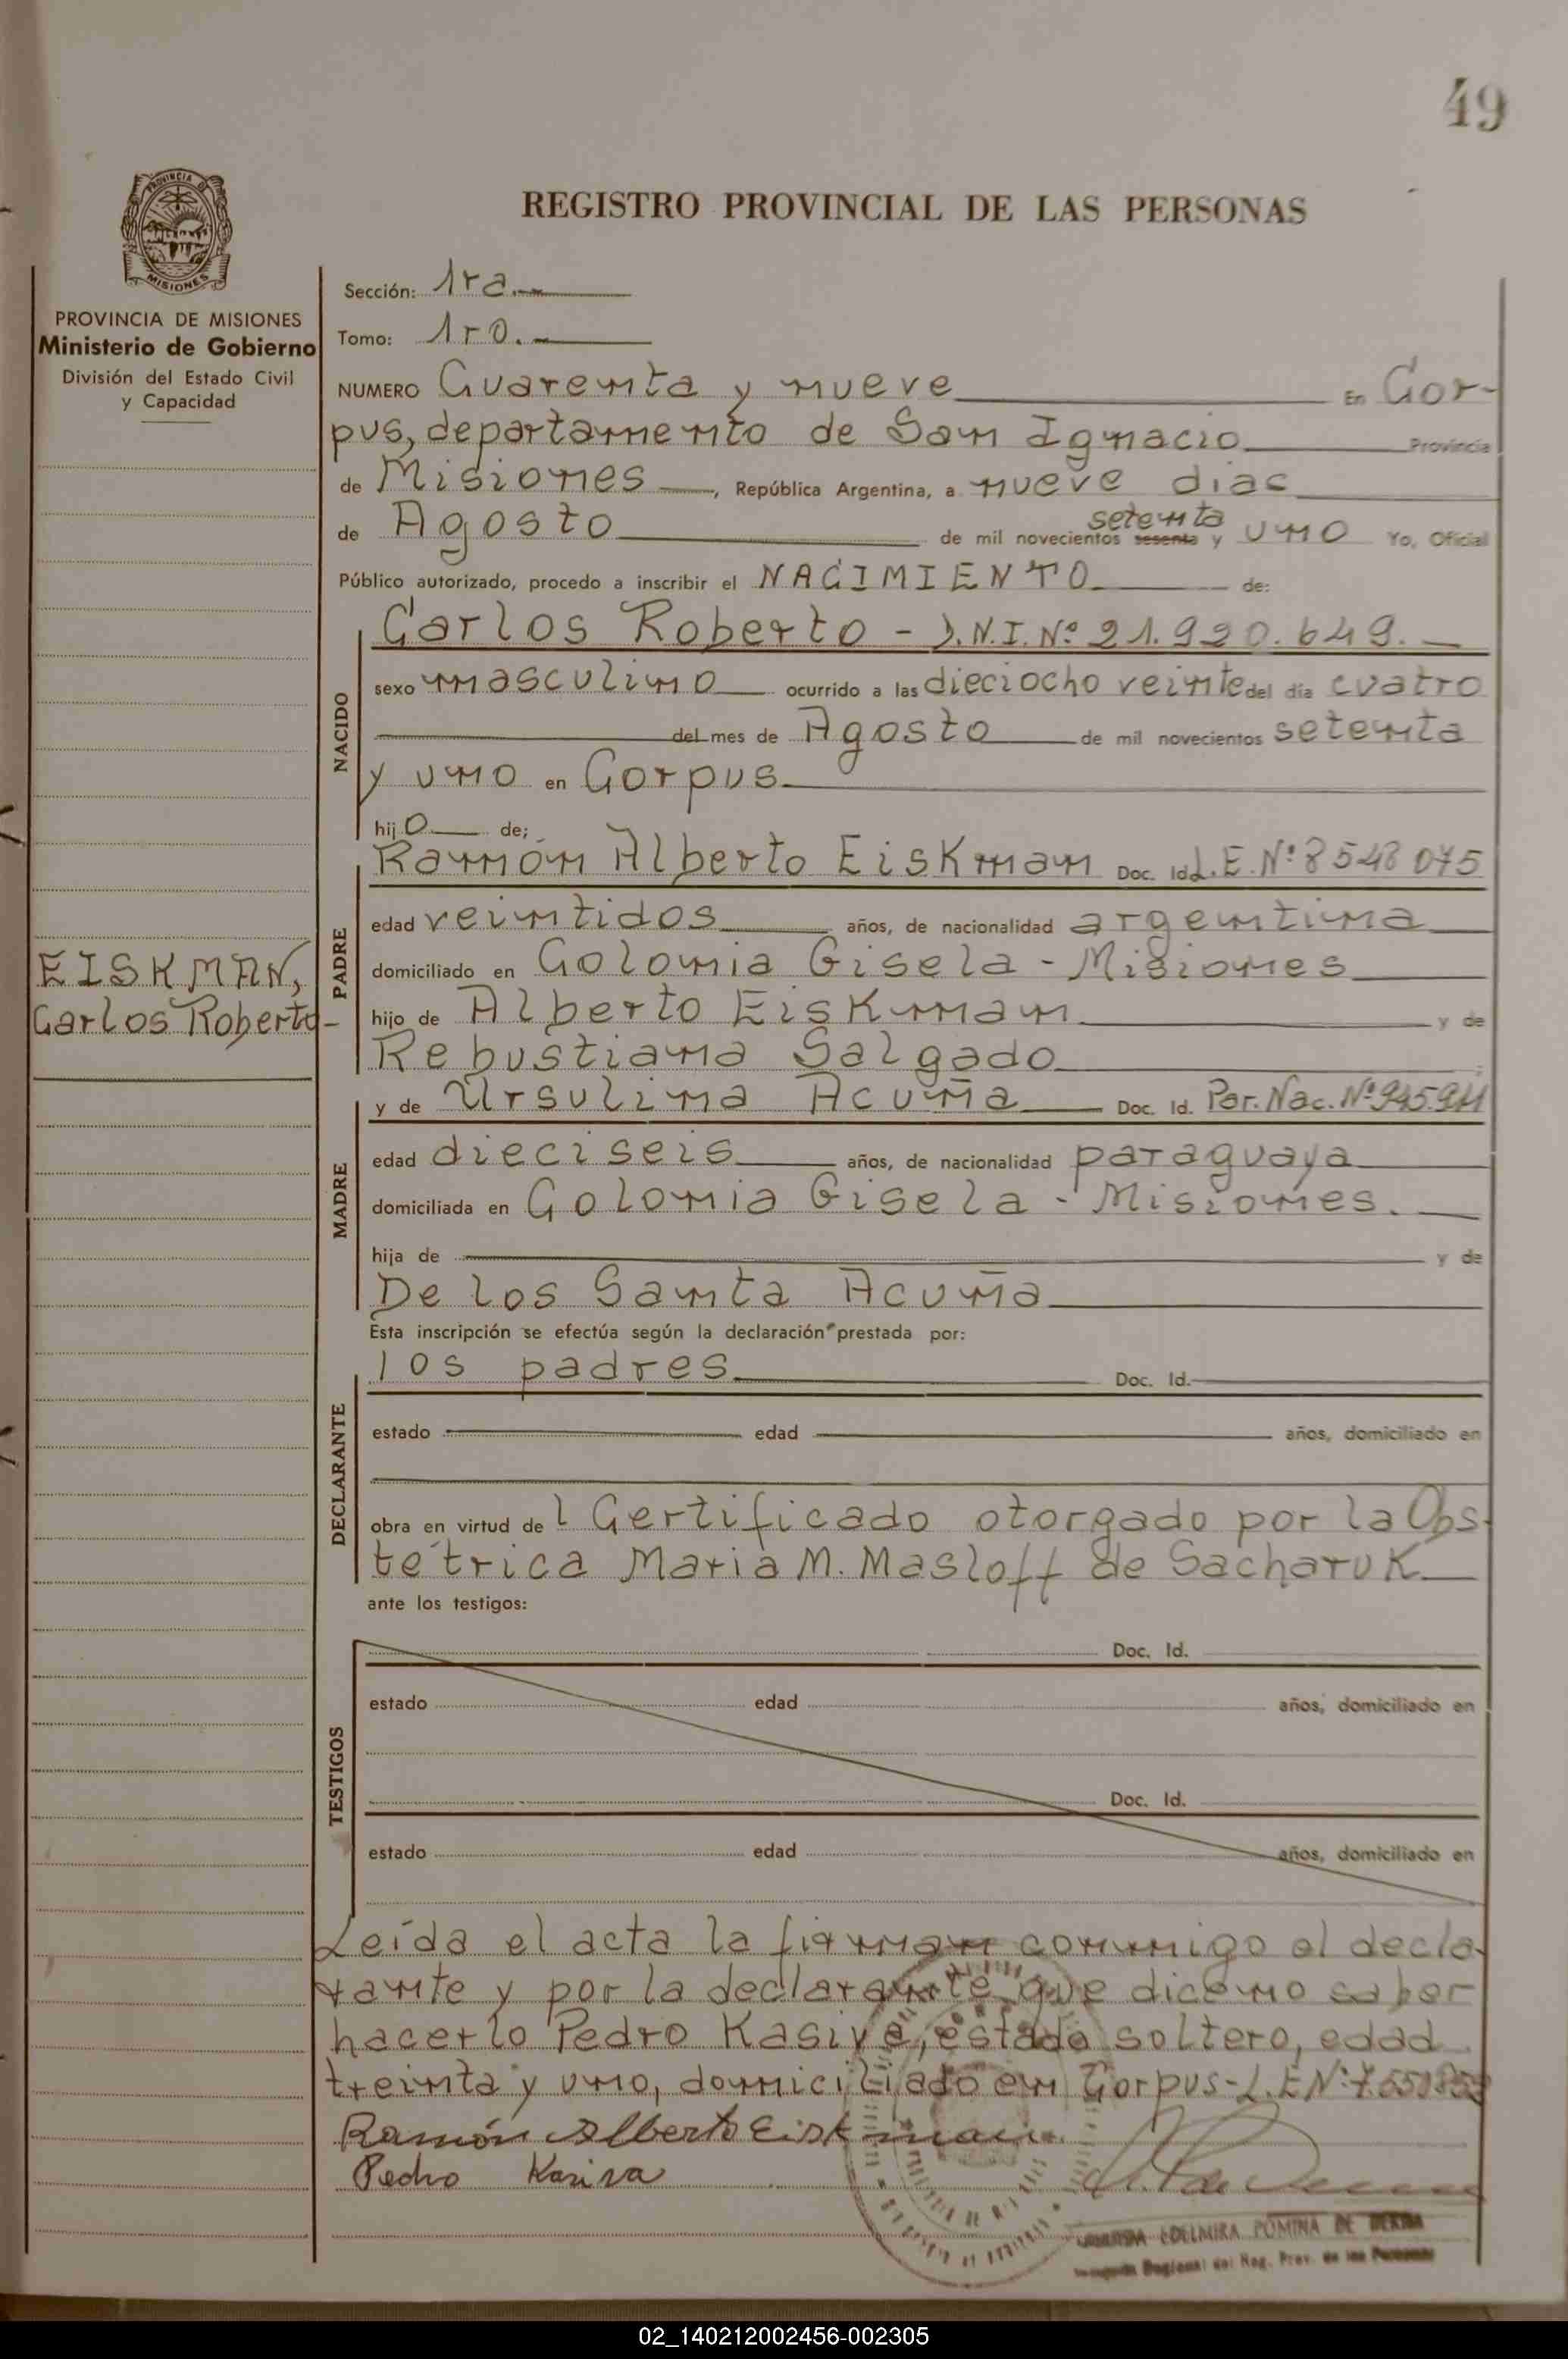 49
REGISTRO PROVINCIAL DE LAS PERSONAS
PROVINCIA DE MISIONES
Ministerio de Gobierno
División del Estado Civil
y Capacidad
EISKMAN,
Carlos Roberto-
Sección: 1ra.
Tomo: 1ro.
NUMERO Cuarenta y nueve En Cor-
pus, departamento de San Ignacio Provincia
de Misiones, República Argentina, a nueve dias
de Agosto de mil novecientos sesenta setenta y uno Yo, Oficial
Público autorizado, procedo a inscribir el NACIMIENTO de:
NACIDO
Carlos Roberto - D.N.I. Nº 21.920.649.
sexo masculino ocurrido a las dieciocho veinte del día cuatro
del mes de Agosto de mil novecientos setenta
y uno en Corpus
hijo de;
PADRE
Ramón Alberto Eiskman Doc. Id. L.E. Nº 8548075
edad veintidos años, de nacionalidad argentina
domiciliado en Colonia Gisela - Misiones
hijo de Alberto Eiskman y de
Rebustiana Salgado
MADRE
y de Ursulina Acuña Doc. Id. Par. Nac. Nº 945.911
edad dieciseis años, de nacionalidad paraguaya
domiciliada en Colonia Gisela - Misiones.
hija de y de
De los Santa Acuña
Esta inscripción se efectúa según la declaración prestada por:
DECLARANTE
los padres Doc. Id.
estado edad años, domiciliado en
obra en virtud del Certificado otorgado por la Obs-
tétrica Maria M. Masloff de Sacharuk
ante los testigos:
TESTIGOS
Doc. Id.
estado edad años, domiciliado en
Doc. Id.
estado edad años, domiciliado en
Leída el acta la firman conmigo el decla-
rante y por la declarante que dice no saber
hacerlo Pedro Kasiva, estado soltero, edad
treinta y uno, domiciliado en Corpus - L.E Nº
Ramón Alberto Eiskman
Pedro Kasiva
EDELMIRA POMINA DE
Regional del Reg. Prov. de las Personas
02_140212002456-002305